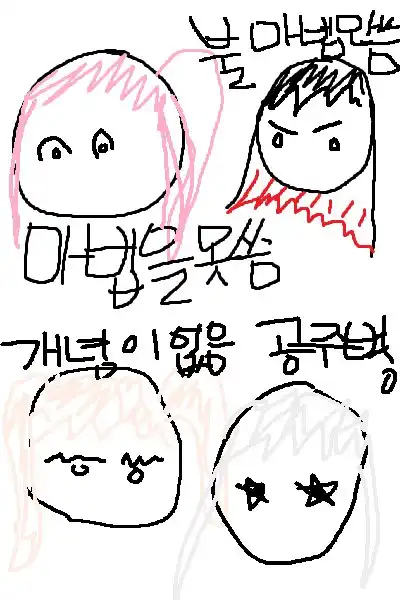 불 마법못씀
마법을 못씀
개념이 없음 공주병